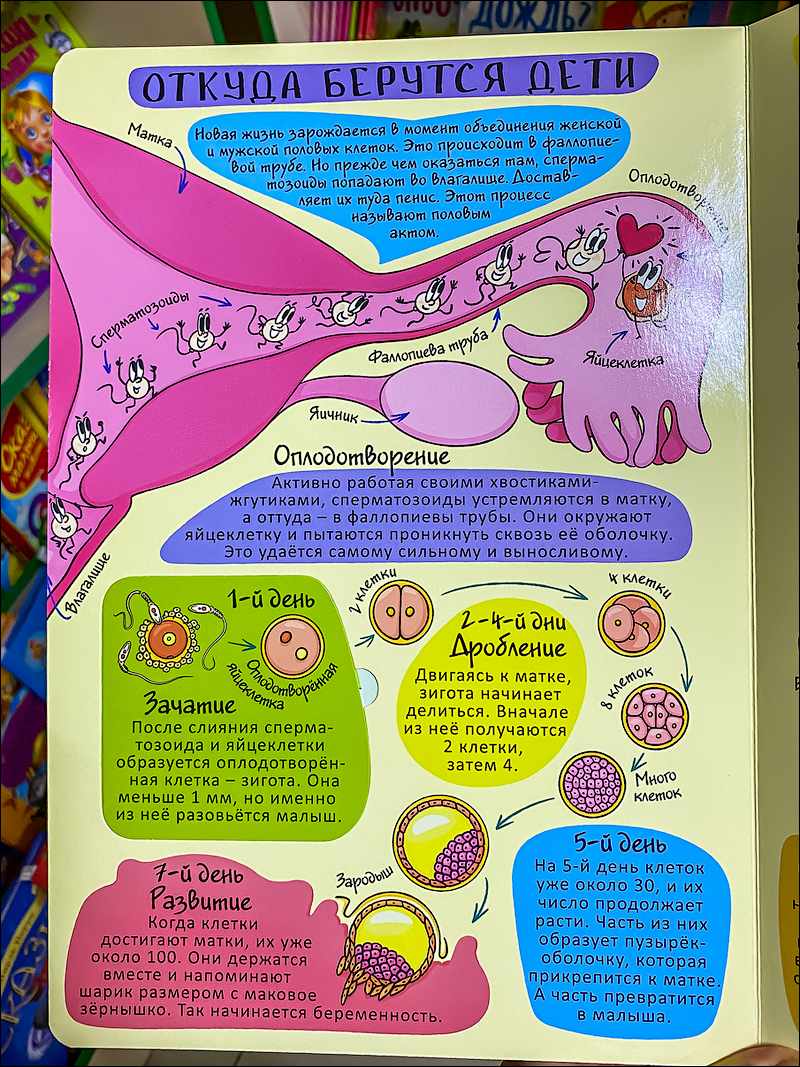 ДОЖДЬ?
ОТКУДА БЕРУТСЯ ДЕТИ
Новая жизнь зарождается в момент объединения женской
и мужской половых клеток. Это происходит в фаллопие-
вой трубе. Но прежде чем оказаться там, сперма-
тозоиды попадают во влагалище. Достав-
ляет их туда пенис. Этот процесс
называют половым
актом.
Матка
Сперматозоиды
Фаллопиева труба
Яйцеклетка
Яичник
Влагалище
Оплодотворение
Активно работая своими хвостиками-
жгутиками, сперматозоиды устремляются в матку,
а оттуда – в фаллопиевы трубы. Они окружают
яйцеклетку и пытаются проникнуть сквозь её оболочку.
Это удаётся самому сильному и выносливому.
1-й день
Оплодотворённая
яйцеклетка
Зачатие
После слияния сперма-
тозоида и яйцеклетки
образуется оплодотворён-
ная клетка – зигота. Она
меньше 1 мм, но именно
из неё разовьётся малыш.
2 клетки
4 клетки
8 клеток
Много
клеток
2-4-й дни
Дробление
Двигаясь к матке,
зигота начинает
делиться. Вначале
из неё получаются
2 клетки,
затем 4.
5-й день
На 5-й день клеток
уже около 30, и их
число продолжает
расти. Часть из них
образует пузырёк-
оболочку, которая
прикрепится к матке.
А часть превратится
в малыша.
Зародыш
7-й день
Развитие
Когда клетки
достигают матки, их уже
около 100. Они держатся
вместе и напоминают
шарик размером с маковое
зёрнышко. Так начинается беременность.